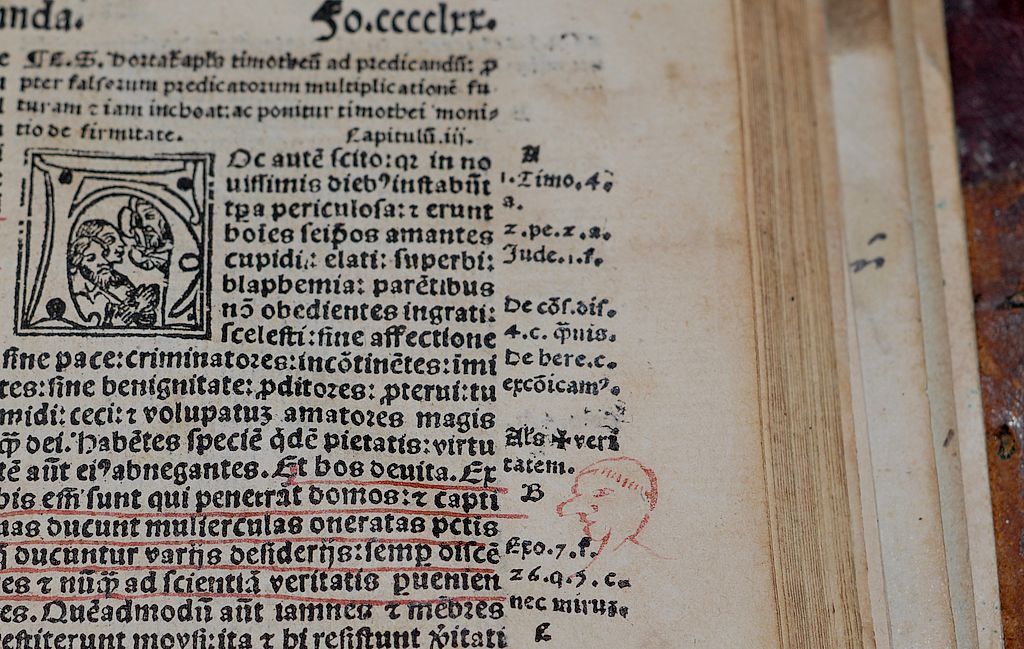 unda. Fo.cccclxx.
¶C.S. Hortat᷑ apl̄s timotheū ad predicandū: ꝓ
pter falsorum predicatorum multiplicationē fu
turam ⁊ iam inchoat: ac ponitur timothei moni⸗
tio de firmitate. Capitulū.iii.
Oc autē scito: qꝛ in no
uissimis diebꝰ instabūt
tp̄a periculosa: ⁊ erunt
hoīes seip̄os amantes
cupidi: elati: superbi:
blasphemia: parētibus
nō obedientes ingrati:
scelesti: sine affectione
sine pace: criminatores: incōtinētes: imi
tes: sine benignitate: ꝓditores: ꝓterui: tu
midi: ceci: ⁊ voluptatuꝫ amatores magis
q̄ꝫ dei. Habētes speciē q̇dē pietatis: virtu
tē aūt eiꝰ abnegantes. Et hos deuita. Ex
his em̄ sunt qui penetrāt domos: ⁊ capti
uas ducunt mulierculas oneratas pctis
ducuntur varijs desiderijs: semꝑ discē
es ⁊ nūq̄ꝫ ad scientiā veritatis ꝑuenien
es. Quēadmodū aūt iamnes ⁊ mēbres
estiterunt moysi: ita ⁊ hi resistunt v̄itati
A
1.Timo.4.
a.
2.pe.2.a.
Jude.1.f.
De cōs.dis.
4.c. q̄uis.
De here.c.
excōicamꝰ.
Als ✠ veri
tatem.
B
Exo.7.f.
26.q.5.c.
nec miruꝫ.